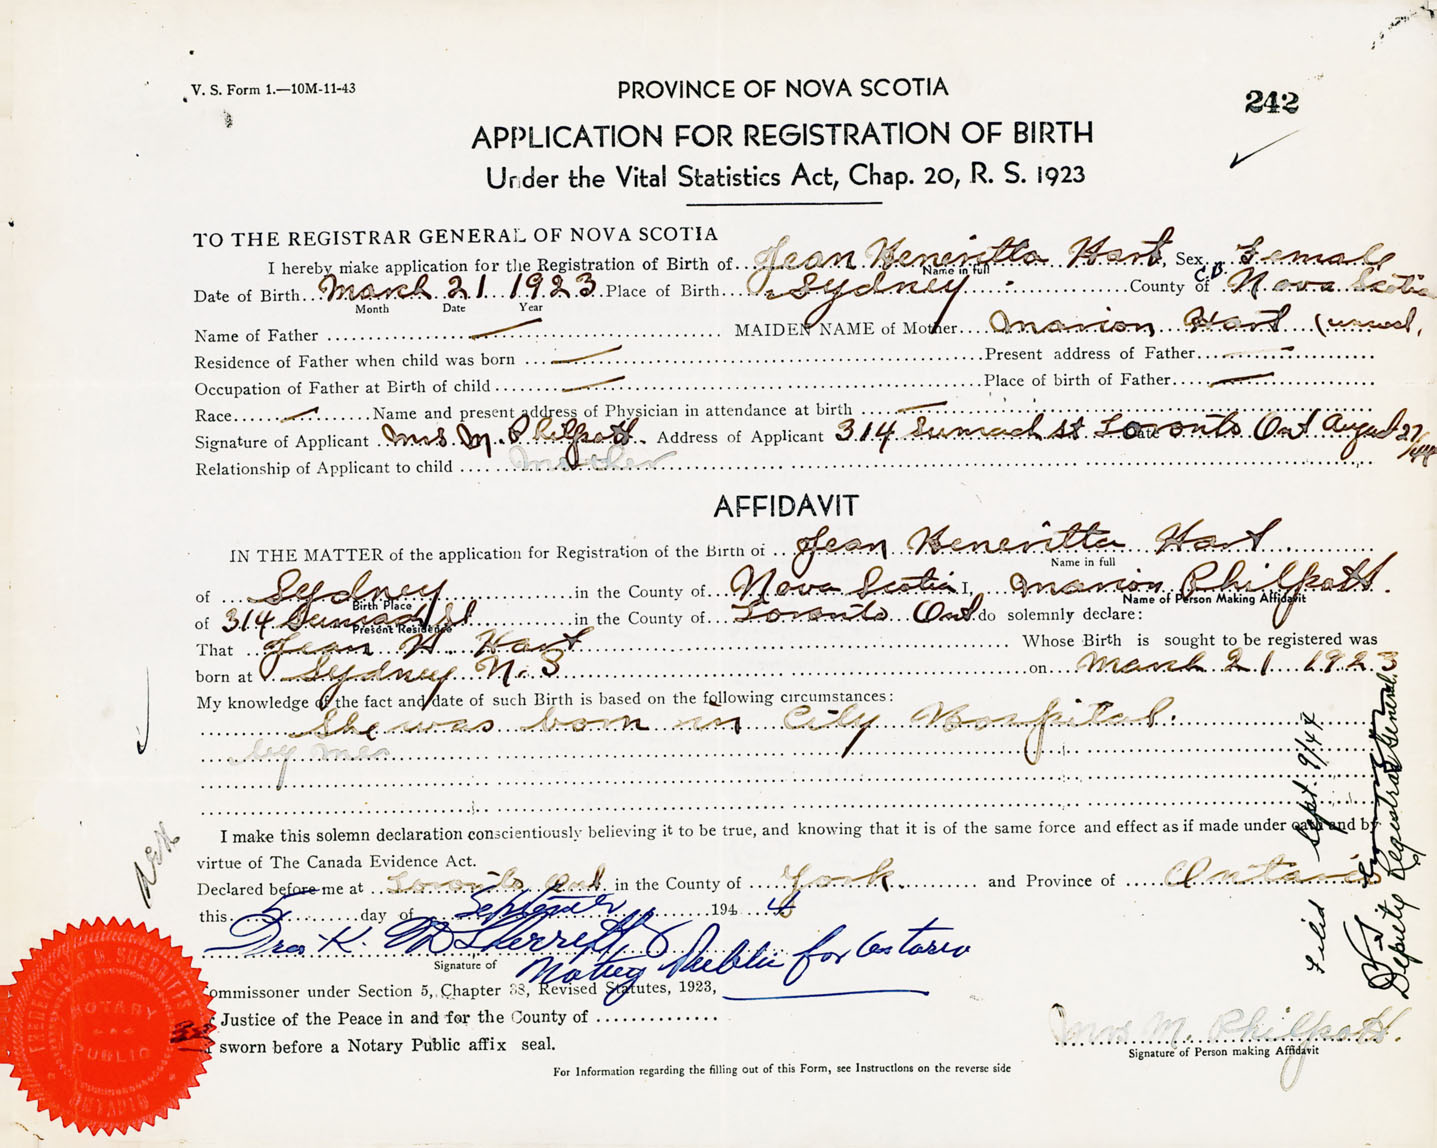 V. S. Form 1.—10M-11-43
PROVINCE OF NOVA SCOTIA
242
APPLICATION FOR REGISTRATION OF BIRTH
Under the Vital Statistics Act, Chap. 20, R. S. 1923
TO THE REGISTRAR GENERAL OF NOVA SCOTIA
I hereby make application for the Registration of Birth of Jean Heneritta Hart, Sex Female
Name in full
Date of Birth March 21 1923 Place of Birth Sydney County of C.B. Nova Scotia
Month Date Year
Name of Father — MAIDEN NAME of Mother Marion Hart
Residence of Father when child was born — Present address of Father —
Occupation of Father at Birth of child — Place of birth of Father —
Race — Name and present address of Physician in attendance at birth —
Signature of Applicant Mrs M. Philpott. Address of Applicant 314 Sumach St Toronto Ont Date August 27/44
Relationship of Applicant to child Mother
AFFIDAVIT
IN THE MATTER of the application for Registration of the Birth of Jean Heneritta Hart.
Name in full
of Sydney in the County of Nova Scotia I, Marion Philpott.
Birth Place Name of Person Making Affidavit
of 314 Sumach St in the County of Toronto Ont do solemnly declare:
Present Residence
That Jean H. Hart Whose Birth is sought to be registered was
born at Sydney N. S on March 21 1923
My knowledge of the fact and date of such Birth is based on the following circumstances:
She was born in City Hospital.
by me
I make this solemn declaration conscientiously believing it to be true, and knowing that it is of the same force and effect as if made under oath and by
virtue of The Canada Evidence Act.
Declared before me at Toronto Ont in the County of York and Province of Ontario
this 5 day of September 1944
Signature of Notary Public for Ontario
ommissoner under Section 5, Chapter 38, Revised Statutes, 1923,
r Justice of the Peace in and for the County of
sworn before a Notary Public affix seal.
Mrs M. Philpott.
Signature of Person making Affidavit
For Information regarding the filling out of this Form, see Instructions on the reverse side
Filed Sept. 9/44
Deputy Registrar General.
NOTARY
PUBLIC
ONTARIO